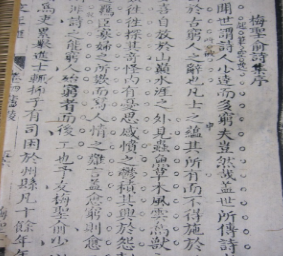 梅聖俞詩集序
聞世謂詩人少達而多窮夫豈然哉蓋世所傳詩
於古窮人之辭也凡士之蘊其所有而不得施於
喜自放於山巔水涯之外見蟲魚草木風雲鳥獸
往探其奇怪內有是思感憤之鬱積其興於怨刺
羈臣寡婦之所歎而寫人情之難言蓋愈窮則愈
非詩之能窮人殆窮者而後工也予友梅聖俞少
為吏累舉進士輒抑於有司困於州縣凡十餘年年